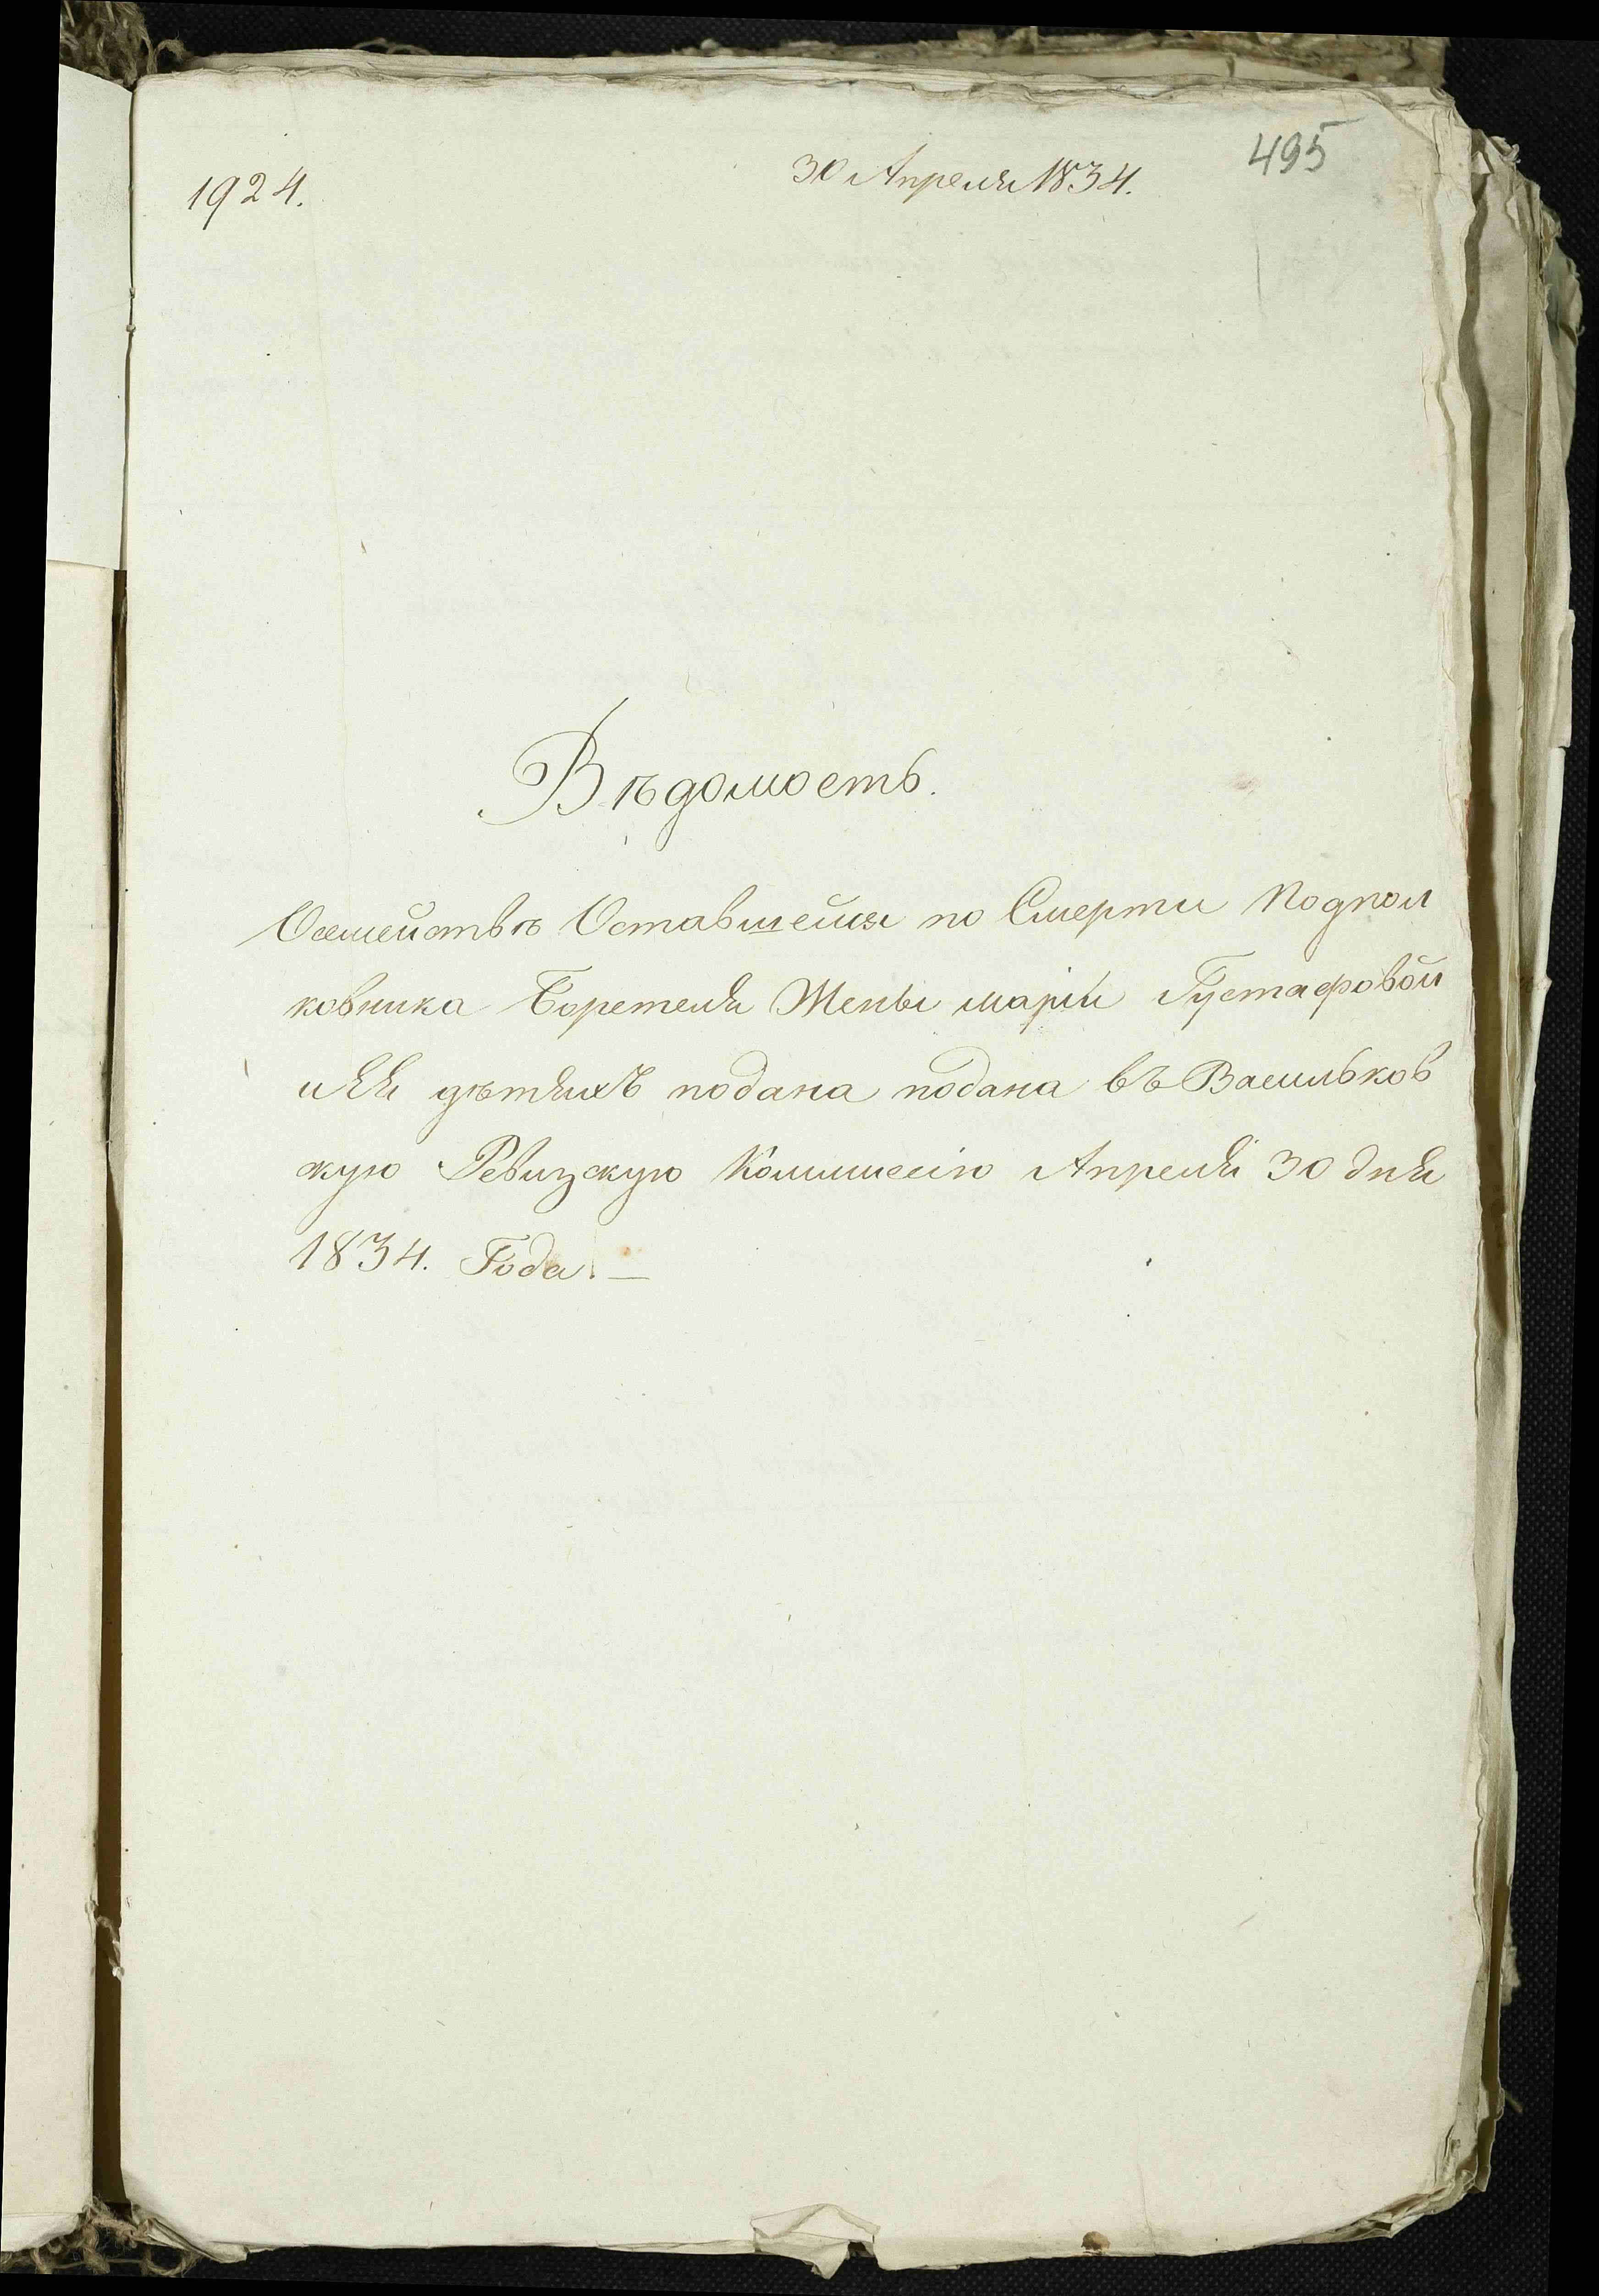 495
1924.
30 Апреля 1834.
Вѣдомость.
Осемействѣ Оставшейся по Смерти Подпол
ковника Боретеля Жены маріи Густафовой
иЯя дѣтяхЪ подана подана въ Васильков
скую Ревизскую Коммиссію Апреля 30 дня
1834. Года. —